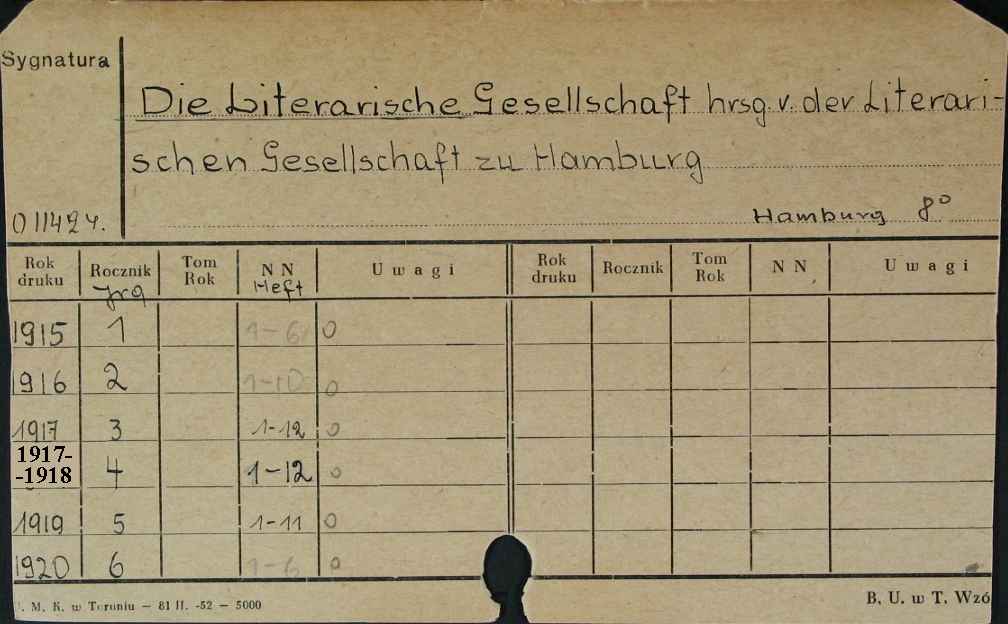 Sygnatura
Die Literarische Gesellschaft hrsg. v. der Literari-
schen Gesellschaft zu Hamburg
011424.
Hamburg 8°
Rok druku Rocznik Tom Rok N N Uwagi Rok druku Rocznik Tom Rok N N Uwagi
Jrg Heft
1915 1 1-6 0
1916 2 1-10 0
1917 3 1-12 0
1917-
-1918 4 1-12 0
1919 5 1-11 0
1920 6 1-6 0
. M. K. w Toruniu — 81 II. -52 — 5000
B. U. w T. Wzó